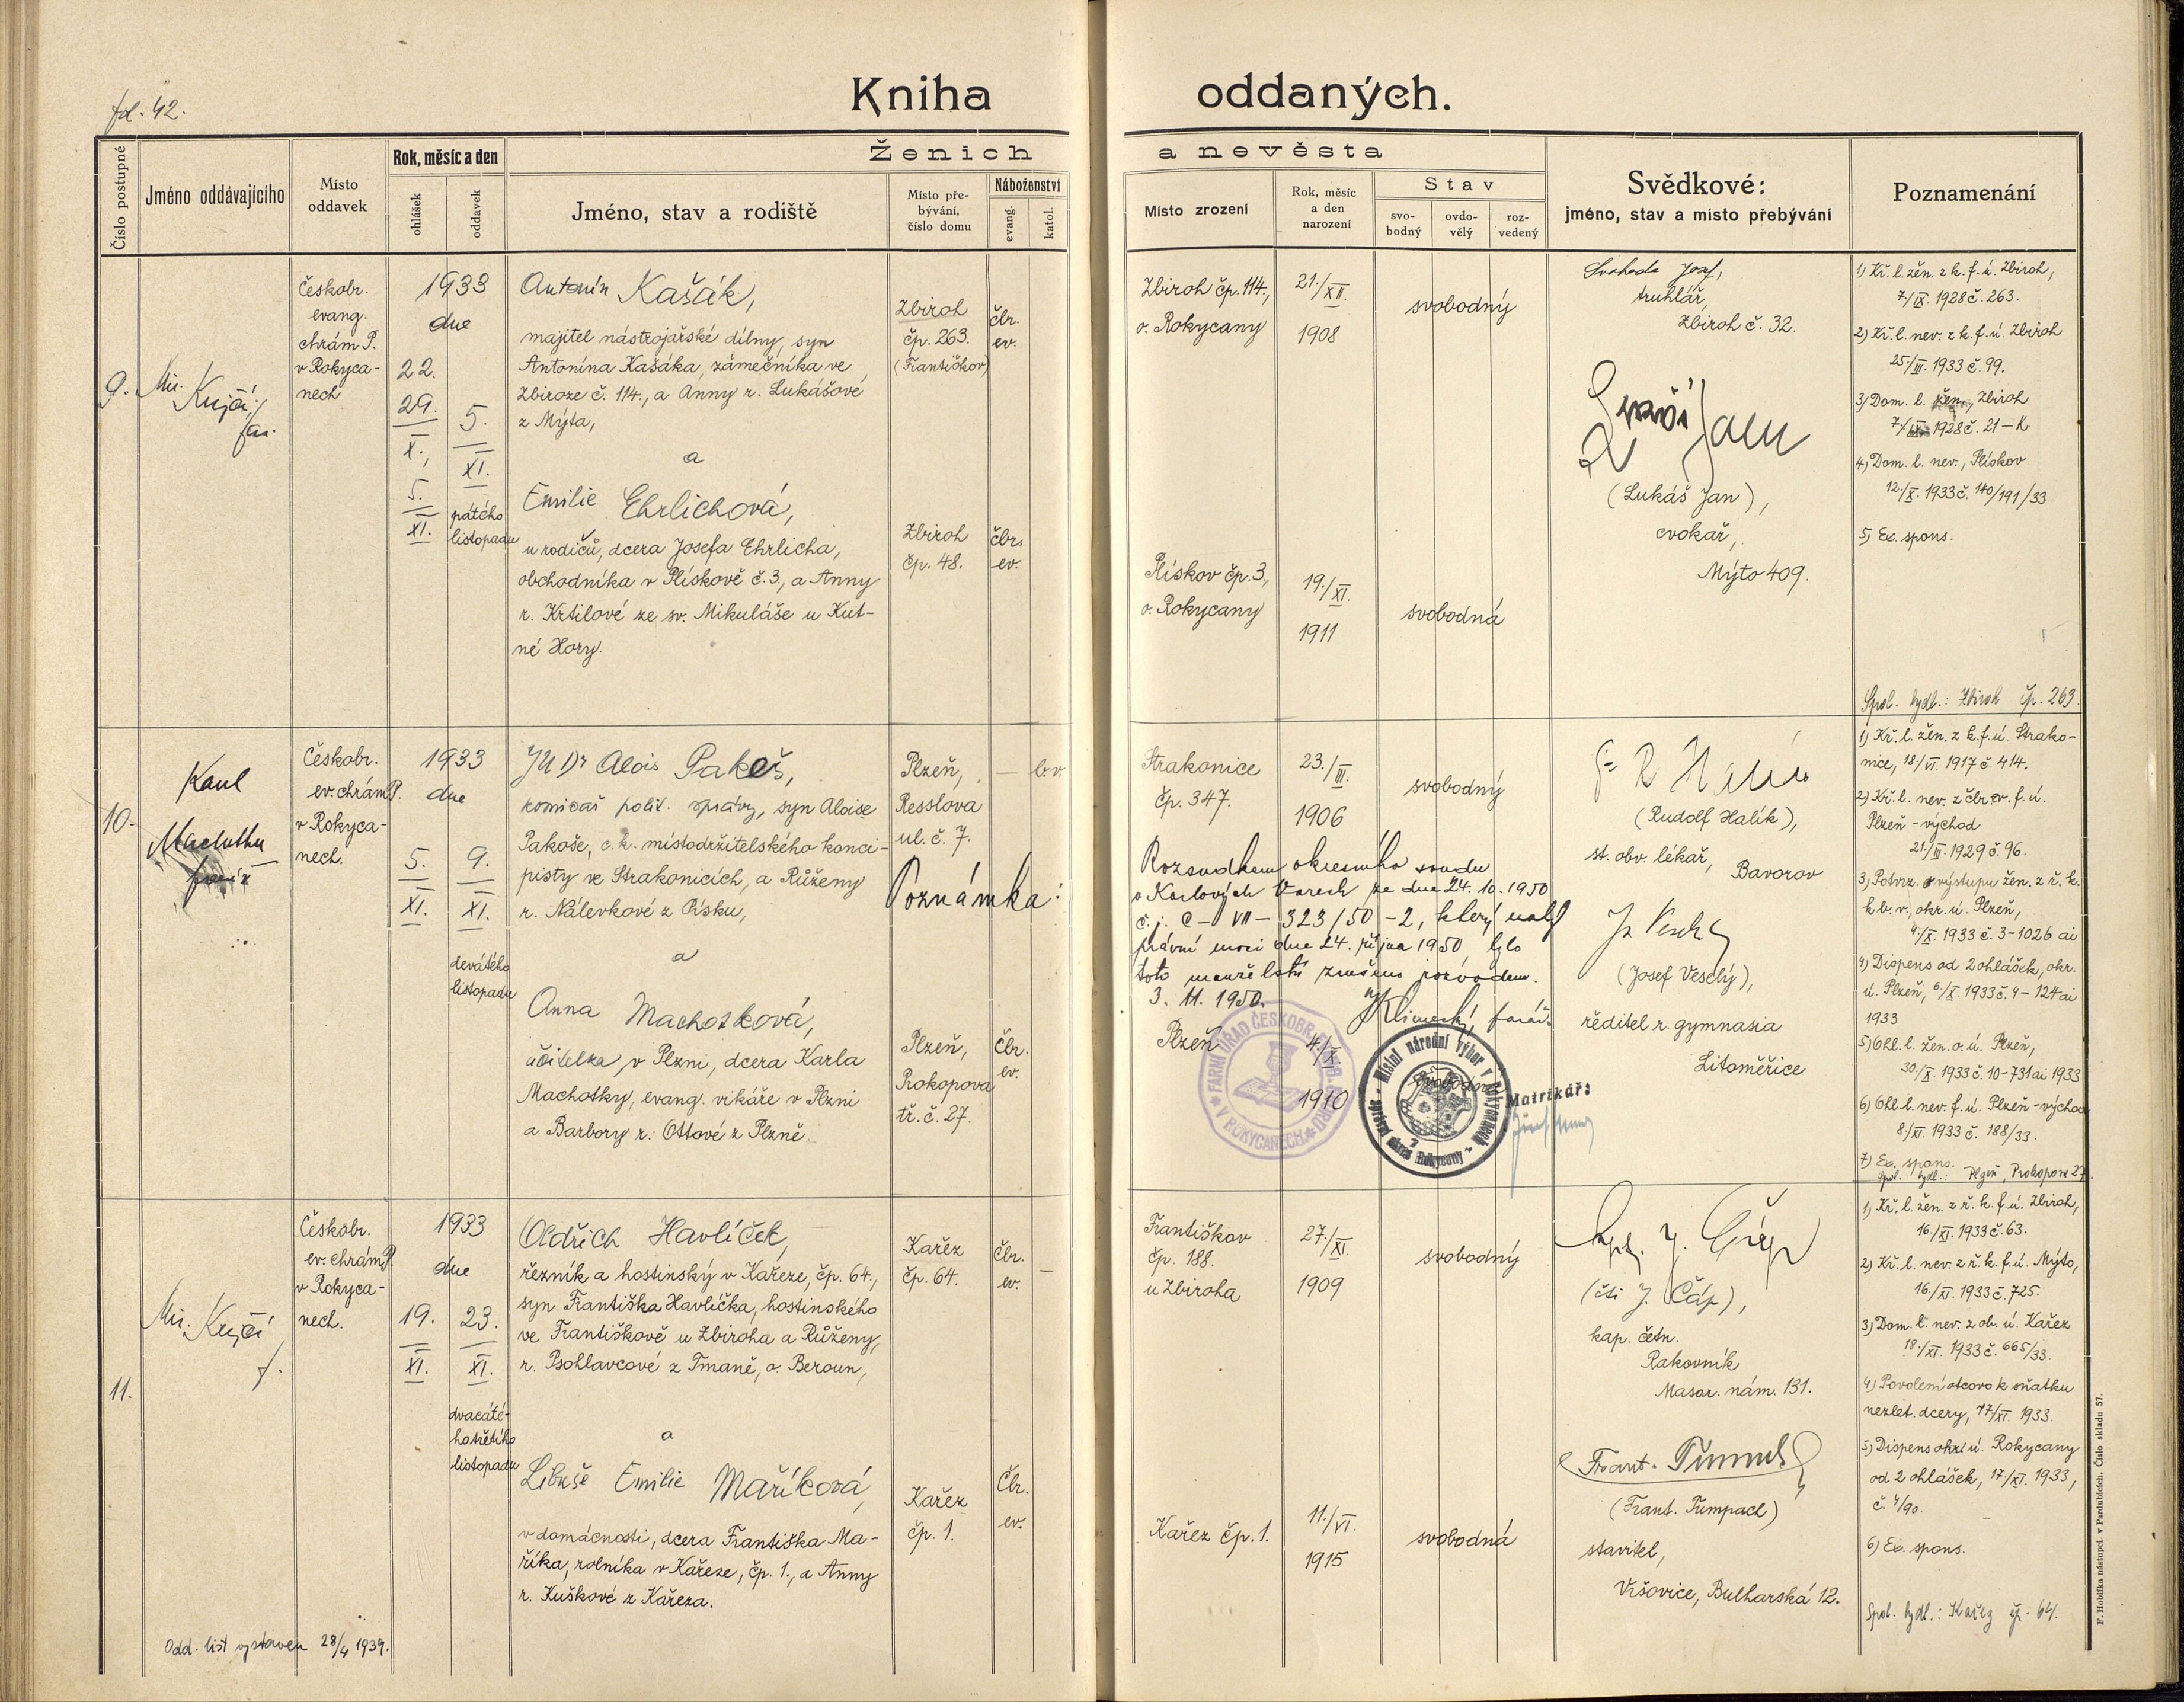 fol. 42.
Kniha oddaných.
Číslo postupné
Jméno oddávajícího
Místo oddavek
Rok, měsíc a den
ohlášek
oddavek
Ženich a nevěsta
Jméno, stav a rodiště
Místo pře-
bývání,
číslo domu
Náboženství
evang.
katol.
Místo zrození
Rok, měsíc
a den
narození
Stav
svo-
bodný
ovdo-
vělý
roz-
vedený
Svědkové:
jméno, stav a místo přebývání
Poznamenání
9.
Mir.
Krejčí,
far.
Českobr.
evang.
chrám P.
v Rokyca-
nech
1933
dne
22.
29.
X.,
5.
XI.
5.
XI.
pátého
listopadu
Antonín Kašák,
majitel nástrojařské dílny, syn
Antonína Kašáka, zámečníka ve
Zbiroze č. 114., a Anny r. Lukášové
z Mýta,
a
Emilie Ehrlichová,
u rodičů, dcera Josefa Ehrlicha,
obchodníka v Plískově č. 3, a Anny
r. Krtilové ze sv. Mikuláše u Kut-
né Hory.
Zbiroh
čp. 263.
(Františkov)
čbr.
ev.
Zbiroh
čp. 48.
čbr.
ev.
Zbiroh čp. 114.,
o. Rokycany
21./XII.
1908
svobodný
Plískov čp. 3,
o. Rokycany
19./XI.
1911
svobodná
Svoboda Josef,
truhlář,
Zbiroh č. 32.
Lukáš Jan
(Lukáš Jan),
cvokař,
Mýto 409.
1) Kř. l. žen. z k. f. ú. Zbiroh,
7/IX. 1928 č. 263.
2) Kř. l. nev. z k. f. ú. Zbiroh
25/III. 1933 č. 99.
3) Dom. l. žen., Zbiroh
7./IX. 1928 č. 21-K
4) Dom. l. nev., Plískov
12./X. 1933 č. 140/191/33
5) Ex. spons.
Spol. bydl.: Zbiroh čp. 263.
10.
Karel
Machotka
farář
Českobr.
ev. chrám P.
v Rokyca-
nech.
1933
dne
5.
XI.
9.
XI.
devátého
listopadu
JUDr Alois Pakoš,
komisař polit. správy, syn Aloise
Pakoše, c. k. místodržitelského konci-
pisty ve Strakonicích, a Růženy
r. Nálevkové z Písku,
a
Anna Machotková,
učitelka v Plzni, dcera Karla
Machotky, evang. vikáře v Plzni
a Barbory r. Ottové z Plzně.
Plzeň,
Resslova
ul. č. 7.
— b.v.
Plzeň,
Prokopova
tř. č. 27.
Čbr.
ev.
Strakonice
čp. 347.
23./III.
1906
svobodný
Poznámka:
Rozsudkem okresního soudu
v Karlových Varech ze dne 24. 10. 1950
č. j. C-VII-323/50-2, který nabyl
právní moci dne 24. října 1950 bylo
toto manželství zrušeno rozvodem.
3. 11. 1950.
farář.
Plzeň
4./X
1910
svobodná
FARNÍ ÚŘAD ČESKOBR. CÍRKVE EV. V ROKYCANECH
Místní národní výbor v Rokycanech - správní okres Rokycany -
2
Matrikář:
(Rudolf Halík),
st. obv. lékař,
Bavorov
(Josef Veselý),
ředitel r. gymnasia
Litoměřice
1) Kř. l. žen. z k. f. ú. Strako-
nice, 18/VI. 1917 č. 414.
2) Kř. l. nev. z čbr. ev. f. ú.
Plzeň - východ
21./III. 1929 č. 96.
3) Potvrz. o výstupu žen. z ř. k.
k b. v., okr. ú. Plzeň,
4./X. 1933 č. 3-1026 ai
4) Dispens od 2 ohlášek, okr.
ú. Plzeň, 6/X. 1933 č. 4-124 ai
1933
5) Ohl. l. žen. o. ú. Plzeň,
30/X. 1933 č. 10-731 ai 1933
6) Ohl. l. nev. f. ú. Plzeň - východ
8/XI. 1933 č. 188/33.
7) Ex. spons.
Spol. bydl.: Plzeň, Prokopova 27.
11.
Mir. Krejčí
f.
Českobr.
ev. chrám P.
v Rokyca-
nech.
1933
dne
19.
XI.
23.
XI.
dvacáté-
ho třetího
listopadu
Oldřich Havlíček,
řezník a hostinský v Kařeze, čp. 64.,
syn Františka Havlíčka, hostinského
ve Františkově u Zbiroha a Růženy,
r. Psohlavcové z Tmaně, o. Beroun,
a
Libuše Emilie Maříková,
v domácnosti, dcera Františka Ma-
říka, rolníka v Kařeze, čp. 1., a Anny
r. Kuškové z Kařeza.
Kařez
čp. 64.
Čbr.
ev.
—
Kařez
čp. 1.
Čbr.
ev.
Františkov
čp. 188.
u Zbiroha
27./XI.
1909
svobodný
Kařez čp. 1.
11./VI.
1915
svobodná
kpt. J. Čáp
(čti J. Čáp),
kap. četn.
Rakovník
Masar. nám. 131.
Frant. Tumpach
(Frant. Tumpach)
stavitel,
Vršovice, Bulharská 12.
1) Kř. l. žen. z ř. k. f. ú. Zbiroh,
16/XI. 1933 č. 63.
2) Kř. l. nev. z ř. k. f. ú. Mýto,
16./XI. 1933 č. 725.
3) Dom. l. nev. z ob. ú. Kařez
18./XI. 1933 č. 665/33.
4) Povolení otcovo k sňatku
nezlet. dcery, 17/XI. 1933.
5) Dispens okr. ú. Rokycany
od 2 ohlášek, 17./XI. 1933,
č. 4/90.
6) Ex. spons.
Spol. bydl.: Kařez čp. 64.
Odd. list vystaven 28/4 1939.
F. Hoblíka nástupci v Pardubicích. Číslo skladu 57.